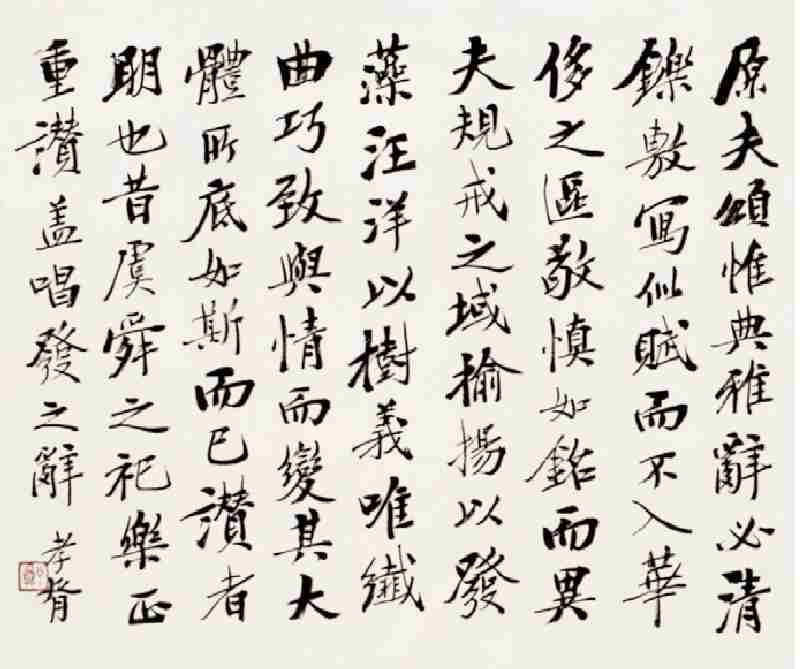 原夫頌惟典雅辭必清
鑠敷寫似賦而不入華
侈之區敬慎如銘而異
夫規戒之域揄揚以發
藻汪洋以樹義唯纖
曲巧致與情而變其大
體所底如斯而已讚者
明也昔虞舜之祀樂正
重讚蓋唱發之辭 孝胥